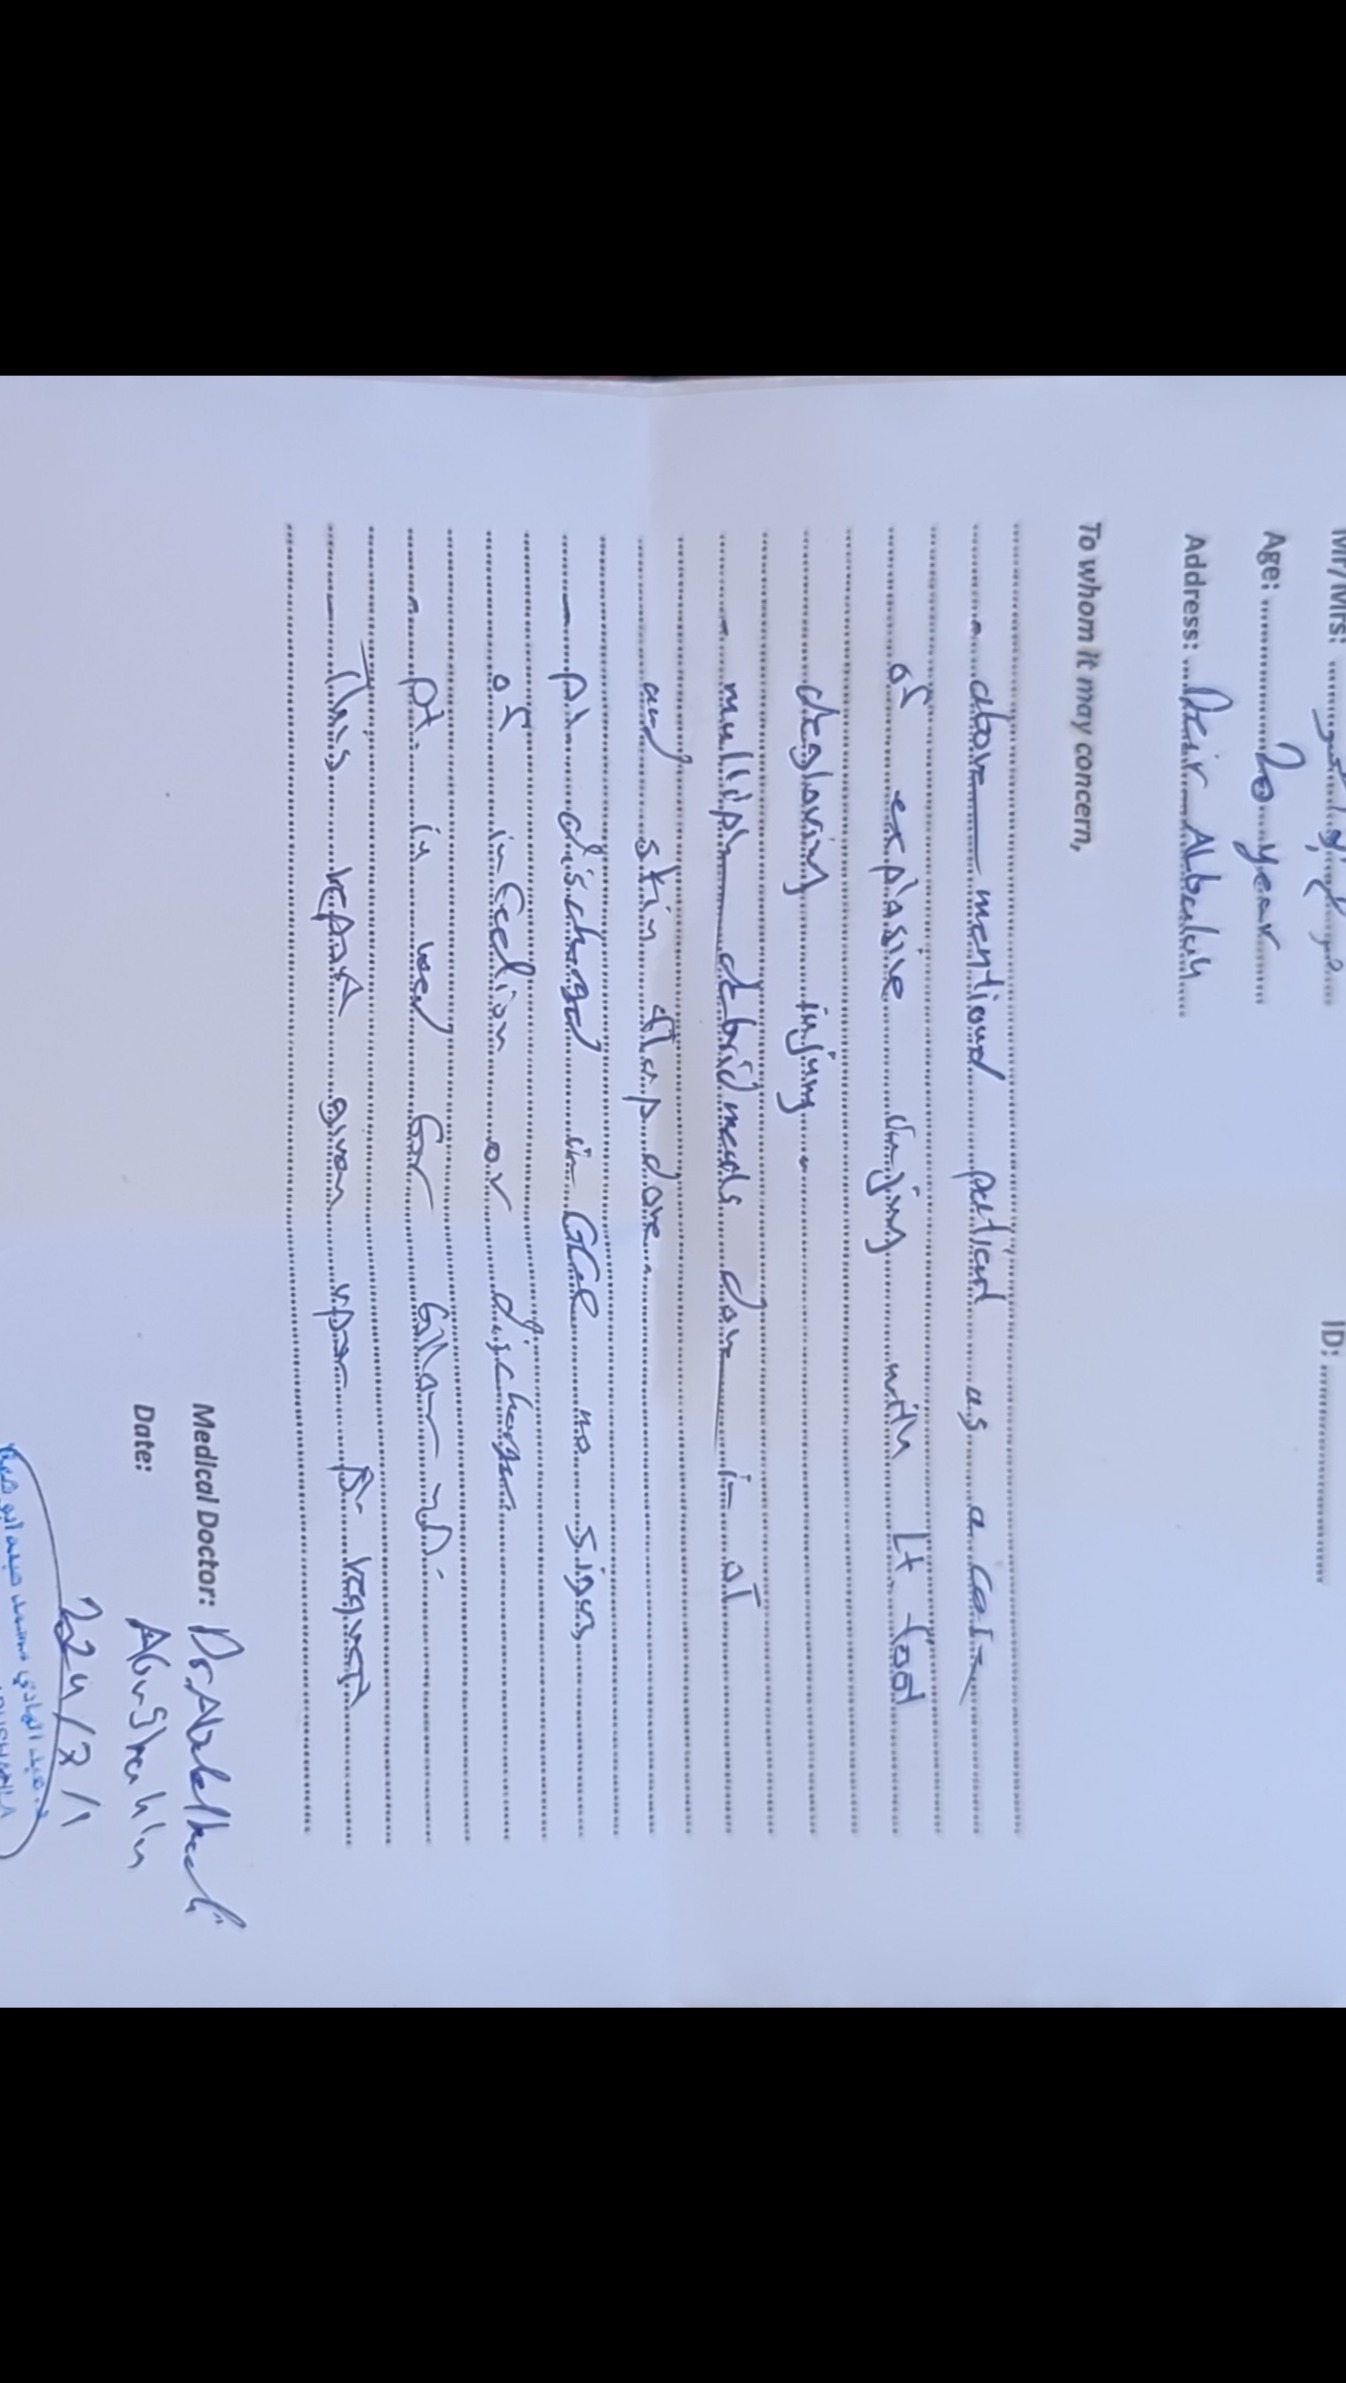 Mr/Mrs:
ID:
Age: 20 year
Address: Deir Albalah
To whom it may concern,
- above mentioned patient as a case
of explosive injury with Lt foot
degloving injury.
- multiple debridments done in OT
and skin flap done.
- pt discharged in GCC no signs
of infection or discharge.
- pt. in need for follow up.
- This report given upon pt. request
Medical Doctor: Dr. Abdelhadi
Abu Shahla
Date:
عبد الهادي محمد
ABUSHAHLA